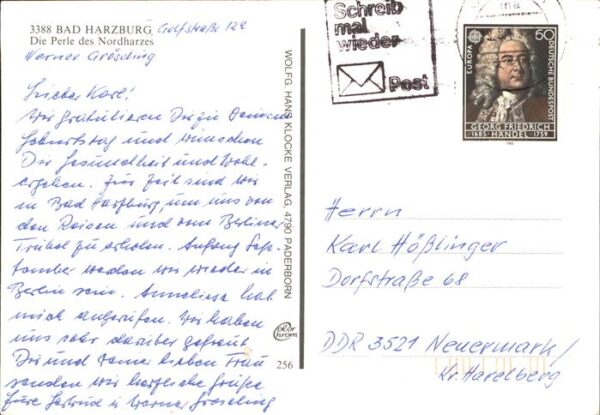 3388 BAD HARZBURG Golfstraße 122
Die Perle des Nordharzes
Werner Grösching
Lieber Karl!
Wir gratulieren Dir zu Deinem
Geburtstag und wünschen
Dir Gesundheit und Wohl-
ergehen. Zur Zeit sind wir
in Bad Harzburg, um uns von
den Reisen und vom Berliner
Trubel zu erholen. Anfang Sep-
tember werden wir wieder in
Berlin sein. Anneliese hat
mich angerufen. Wir haben
uns sehr darüber gefreut.
Dir und Deiner lieben Frau
senden wir herzliche Grüße
Eure Gertrud u. Werner Grösching
WOLFG. HANS KLOCKE VERLAG, 4790 PADERBORN
color
chrom
256
Schreib
mal
wieder
Post
EUROPA
60
DEUTSCHE BUNDESPOST
GEORG FRIEDRICH
1685 HÄNDEL 1759
Herrn
Karl Hößlinger
Dorfstraße 68
DDR 3521 Neuermark/
Kr. Havelberg